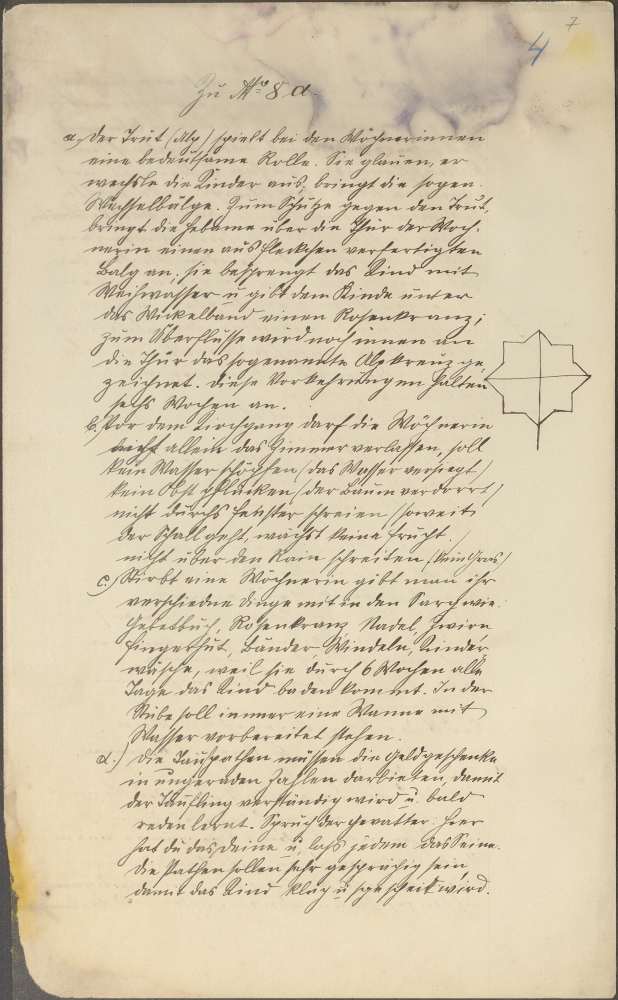 7
4
Zu No 8 a.
a., Der Trut (Alp) spielt bei den Wöchnerinnen
eine bedeutsame Rolle. Sie glauen, er
wechsle die Kinder aus, bringt die sogen.
Wechselbälge. Zum Schutze gegen den Trut,
bringt die Hebame über die Thür der Wöch-
nerin einen aus Fleckchen verfertigten
Balg an; sie besprengt das Kind mit
Weihwasser u gibt dem Kinde unter
das Wickelband einen Rosenkranz;
zum Überflusse wird noch innen an
die Thür das sogenannte Alpkreuz ge
zeichnet. Diese Vorkehrungen halten
sechs Wochen an.
b. Vor dem Kirchgang darf die Wöchnerin
nicht allein das Zimmer verlassen, soll
kein Wasser schöpfen (das Wasser versiegt)
kein Obst pflücken (der Baum verdorrt)
nicht durchs Fenster schreien (soweit
der Schall geht, wächst keine Frucht.)
nicht über den Rain schreiten (kein Gras)
c.) Stirbt eine Wöchnerin gibt man ihr
verschiedne Dinge mit in den Sarg wie:
Gebetbuch, Rosenkranz, Nadel, Zwirn
Fingerhut, Bänder, Windeln, Kinder
wäsche, weil sie durch 6 Wochen alle
Tage das Kind baden kommt. In der
Stube soll immer eine Wanne mit
Wasser vorbereitet stehen.
d.) Die Taufpathen müssen die Geldgeschenke
in ungeraden Zahlen darbieten, damit
der Täufling verständig wird u. bald
reden lernt. Spruch der Gevatter: Hier
hast du das Deine u. lass jedem das Seine.
Die Pathen sollen sehr gesprächig sein,
damit das Kind klug u gescheit wird.